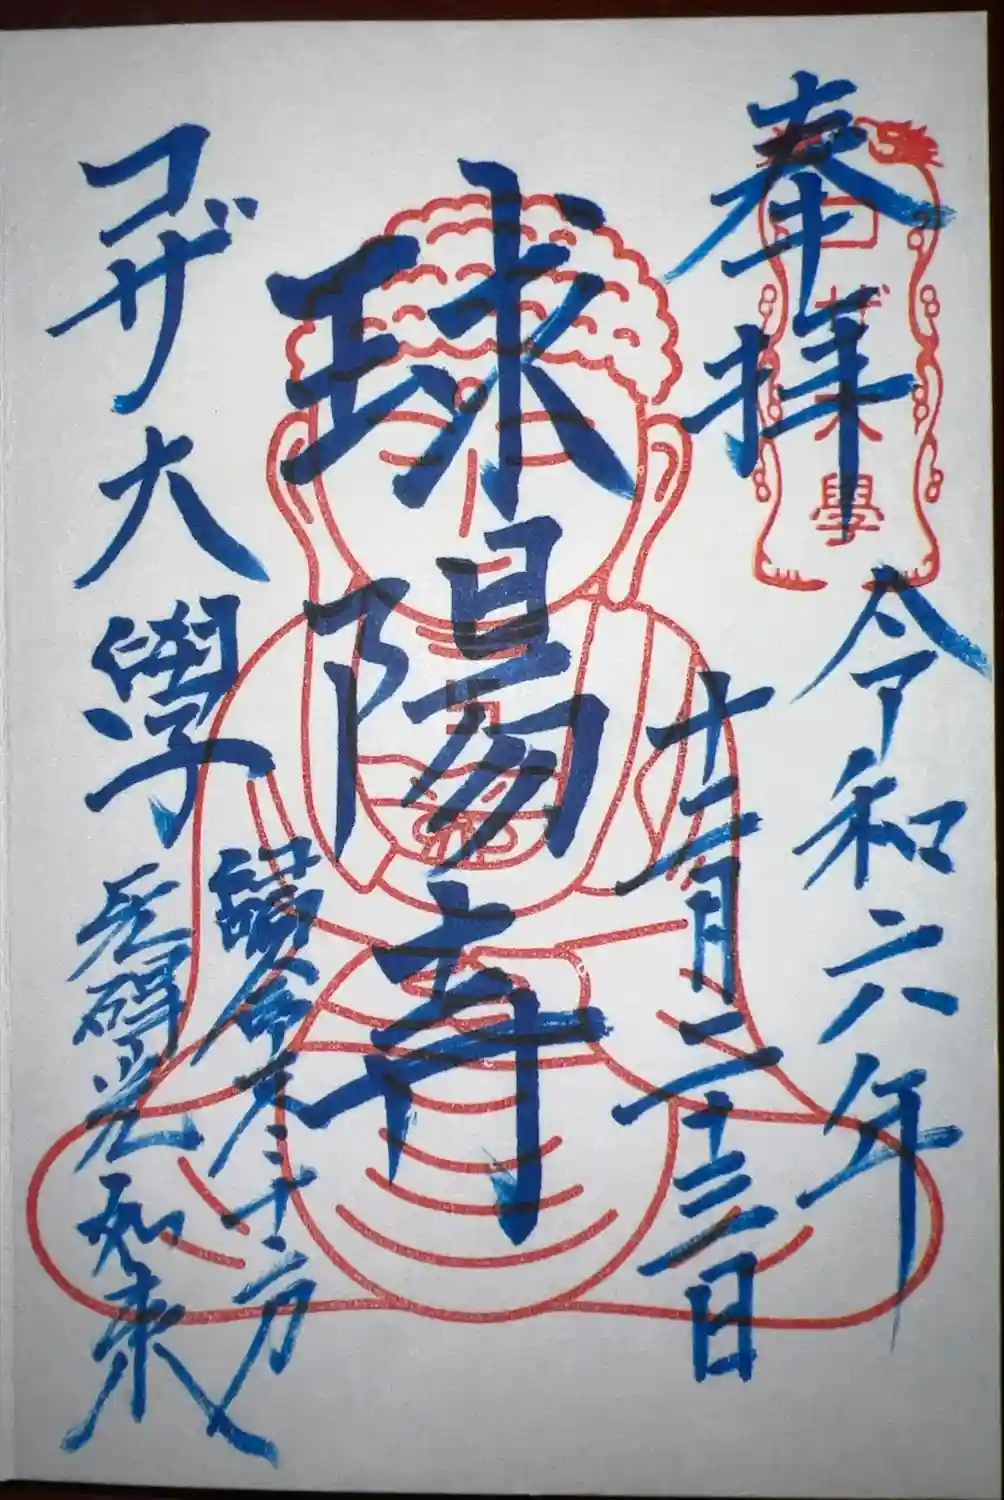 奉拝
コザ大學
令和六年
十二月二十三日
球陽寺
コザ大學
歸命尽十方
无碍光如来